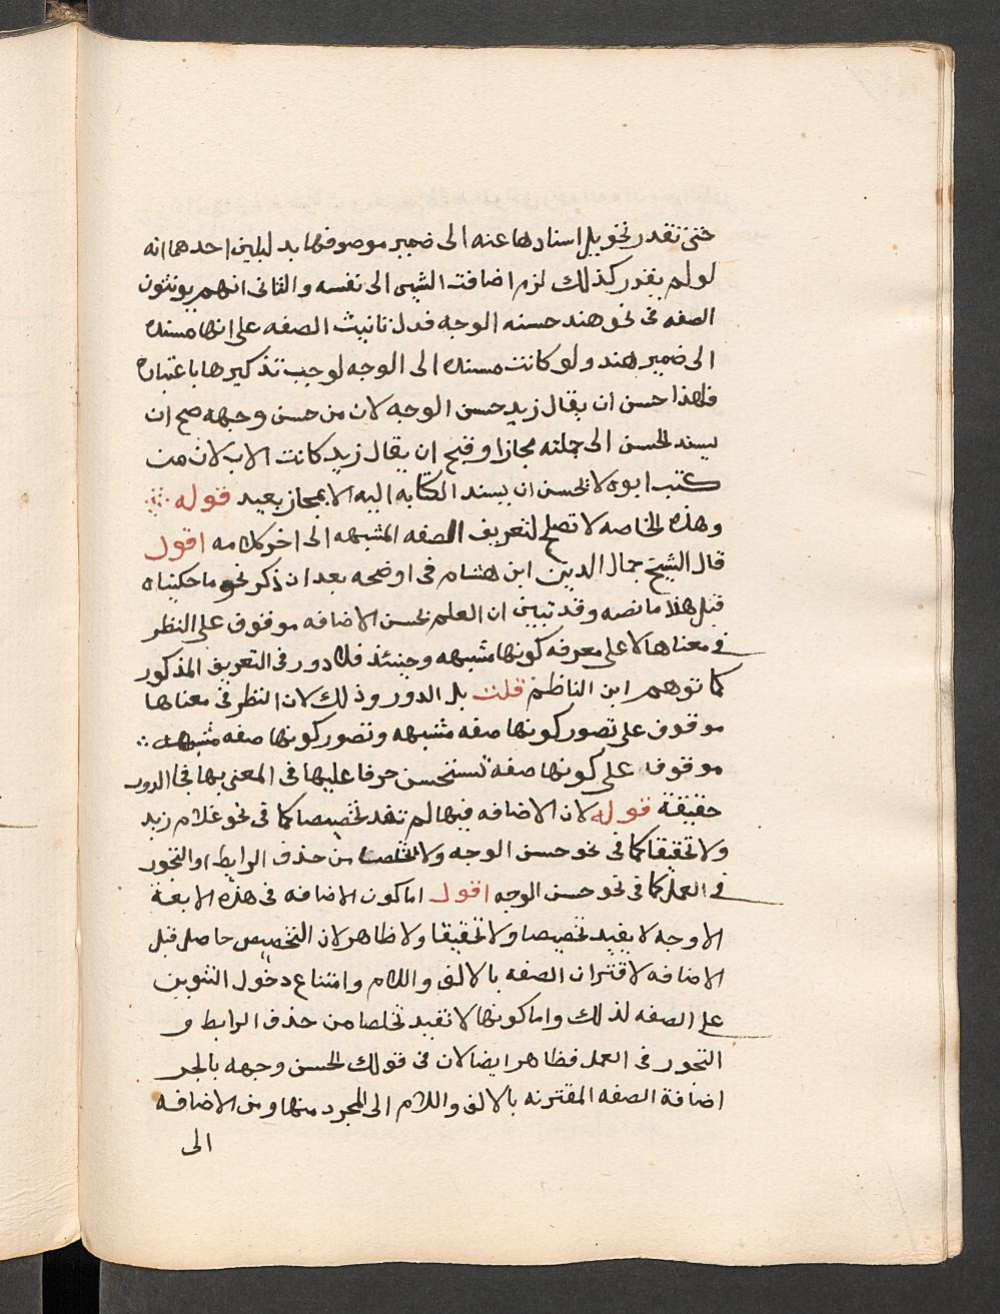 حتى تقدر تحويل اسنادها عنه الى ضمير موصوفها بدليلين احدهما انه
لو لم يقدر كذلك لزم اضافت الشي الى نفسه والثاني انهم يونثون
الصفه في نحو هند حسنه الوجه فدل تانيث الصفه على انها مسنده
الى ضمير هند ولو كانت مسنده الى الوجه لوجب تذكيرها باعتباره
فلهذا حسن ان يقال زيد حسن الوجه لان من حسن وجهه صح ان
يسند الحسن الى جملته مجازا وقبح ان يقال زيد كاتب الاب لان من
كتب ابوه لا يحسن ان يسند الكتابه اليه الا بمجاز بعيد قوله
وهذه الخاصه لا تصلح لتعريف الصفه المشبهه الى اخر كلامه اقول
قال الشيخ جمال الدين ابن هشام في اوضحه بعد ان ذكر نحو ما حكيناه
قبل هذا ما نصه وقد تبين ان العلم بحسن الاضافه موقوف على النظر
في معناها لا على معرفه كونها مشبهه وحينئذ فلا دور في التعريف المذكور
كما توهم ابن الناظم قلت بل الدور وذلك لان النظر في معناها
موقوف على تصور كونها صفه مشبهه وتصور كونها صفه مشبهه
موقوف على كونها صفه تستحسن جر فاعلها في المعنى بها فجا الدور
حقيقة قوله لان الاضافه فيها لم تفد تخصيصا كما في نحو غلام زيد
ولا تخفيفا كما في نحو حسن الوجه ولا تخلصا من حذف الرابط او التجوز
في العمل كما في نحو حسن الوجه اقول اما كون الاضافه في هذه الاربعة
الاوجه لا يفيد تخصيصا ولا تخفيفا ولا ظاهر لان التخصيص حاصل قبل
الاضافه لاقتران الصفه بالالف واللام وامتناع دخول التنوين
على الصفه لذلك واما كونها لا تفيد تخلصا من حذف الرابط و
التجوز في العمل فظاهر ايضا لان في قولك الحسن وجهه بالجر
اضافة الصفه المقترنه بالالف واللام الى المجرد منها ومن الاضافه
الى